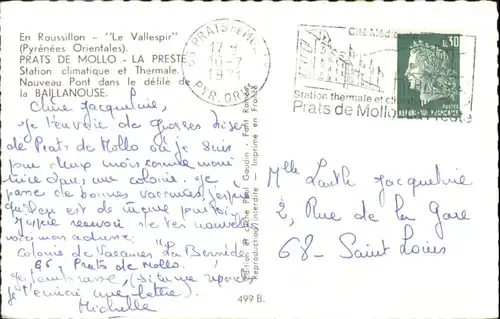 En Roussillon - "Le Vallespir"
(Pyrénées Orientales).
PRATS DE MOLLO - LA PRESTE
Station climatique et Thermale.
Nouveau Pont dans le défilé de
la BAILLANOUSE.
Chère Jacqueline,
Je t'envoie de grosses bises
de Prats de Mollo où je suis
pour deux mois comme moni
trice dans une colonie. Je
passe de bonnes vacances, j'espère
qu'il en est de même pour toi
J'espère recevoir de tes nouvelles
voici mon adresse:
Colonie de Vacances "La
66 Prats de Mollo.
Je t'embrasse, (si tu me réponds
je t'enverrai une lettre).
Michelle
Edition et cliché Paul Gardin - Font Romeu
Reproduction interdite - Imprimé en France
499 B.
PRATS DE MOLLO
17 H
16-7
PYR. OR.
Cité Médiévale
Station thermale et climatique
Prats de Mollo la Preste
0,30
POSTES
REPUBLIQUE FRANÇAISE
Mlle Lauth Jacqueline
2, Rue de la Gare
68 - Saint Louis